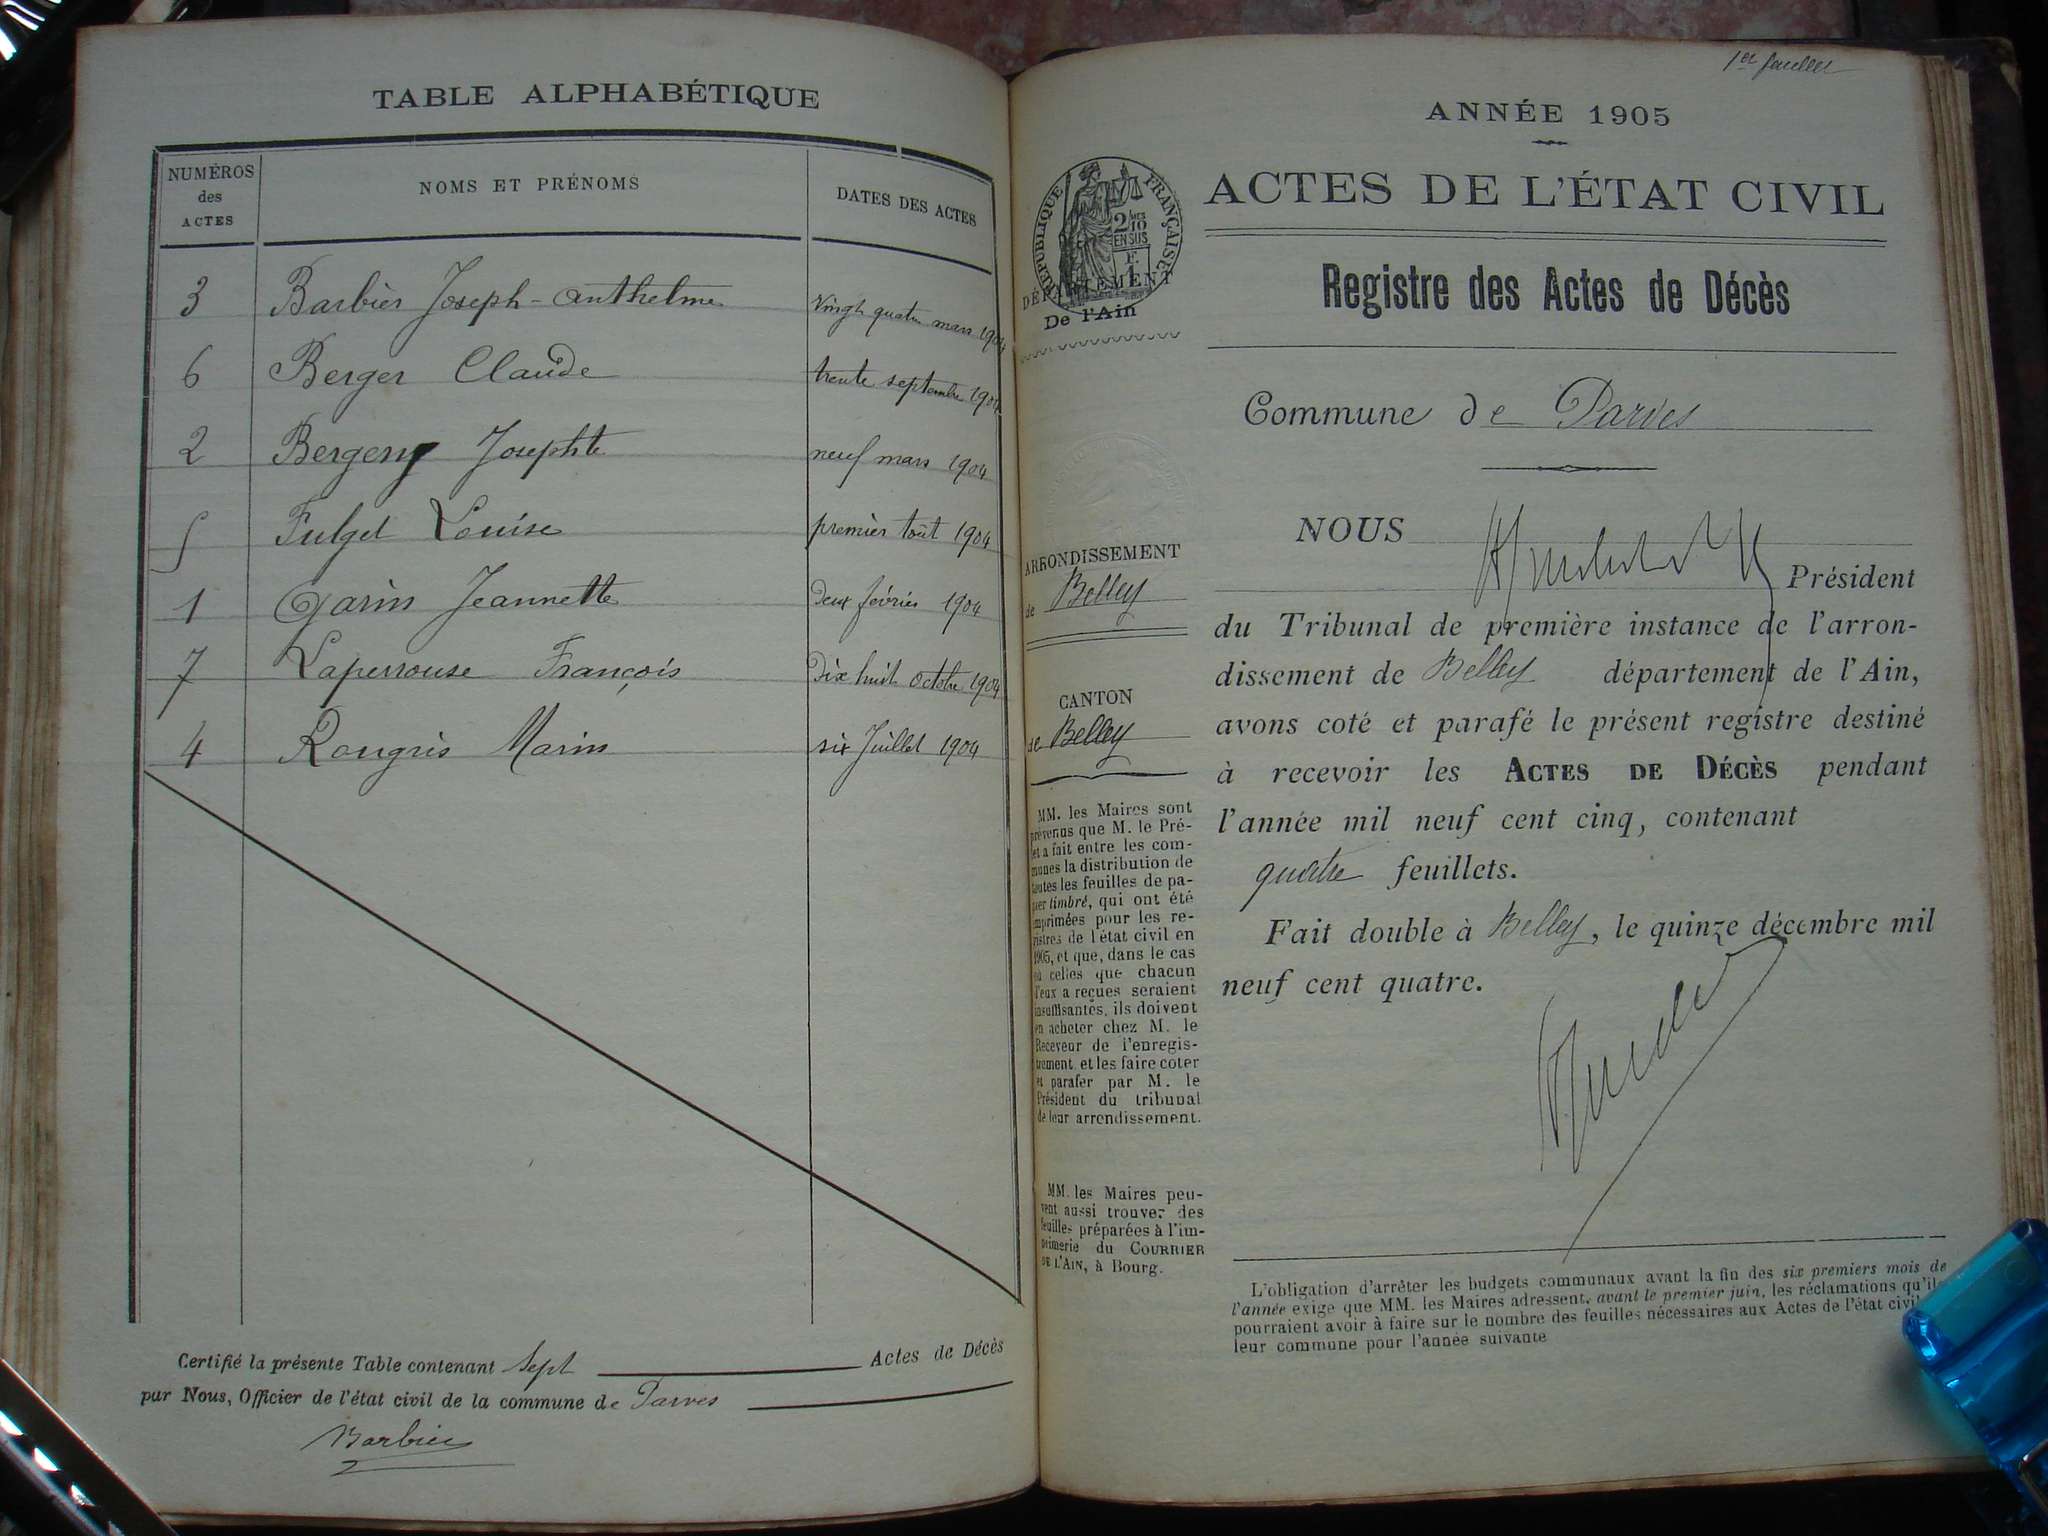 TABLE ALPHABÉTIQUE
NUMÉROS
des
ACTES
NOMS ET PRÉNOMS
DATES DES ACTES
3 Barbier Joseph-anthelme vingt quatre mars 1904
6 Berger Claude trente septembre 1904
2 Josephte neuf mars 1904
5 Fulget Louise premier 1904
1 Garin Jeannette deux février 1904
7 Laperrouse François Dix huit octobre 1904
4 Marin six Juillet 1904
Certifié la présente Table contenant Sept Actes de Décès
par Nous, Officier de l'état civil de la commune de Parves
Barbier
1er feuillet
ANNÉE 1905
ACTES DE L'ÉTAT CIVIL
RÉPUBLIQUE FRANÇAISE
2/10 MES
EN SUS
F.
1
DÉPARTEMENT
De l'Ain
Registre des Actes de Décès
Commune de Parves
ARRONDISSEMENT
de Belley
CANTON
de Belley
MM. les Maires sont
prévenus que M. le Pré-
fet a fait entre les com-
munes la distribution de
toutes les feuilles de pa-
pier timbré, qui ont été
imprimées pour les re-
gistres de l'état civil en
1905, et que, dans le cas
où celles que chacun
d'eux a reçues seraient
insuffisantes, ils doivent
en acheter chez M. le
Receveur de l'enregis-
trement et les faire coter
et parafer par M. le
Président du tribunal
de leur arrondissement.
MM. les Maires peu-
vent aussi trouver des
feuilles préparées à l'im-
primerie du COURRIER
DE L'AIN, à Bourg.
NOUS
Président
du Tribunal de première instance de l'arron-
dissement de Belley département de l'Ain,
avons coté et parafé le présent registre destiné
à recevoir les ACTES DE DÉCÈS pendant
l'année mil neuf cent cinq, contenant
quatre feuillets.
Fait double à Belley, le quinze décembre mil
neuf cent quatre.
L'obligation d'arrêter les budgets communaux avant la fin des six premiers mois de
l'année exige que MM. les Maires adressent, avant le premier juin, les réclamations qu'ils
pourraient avoir à faire sur le nombre des feuilles nécessaires aux Actes de l'état civil
leur commune pour l'année suivante